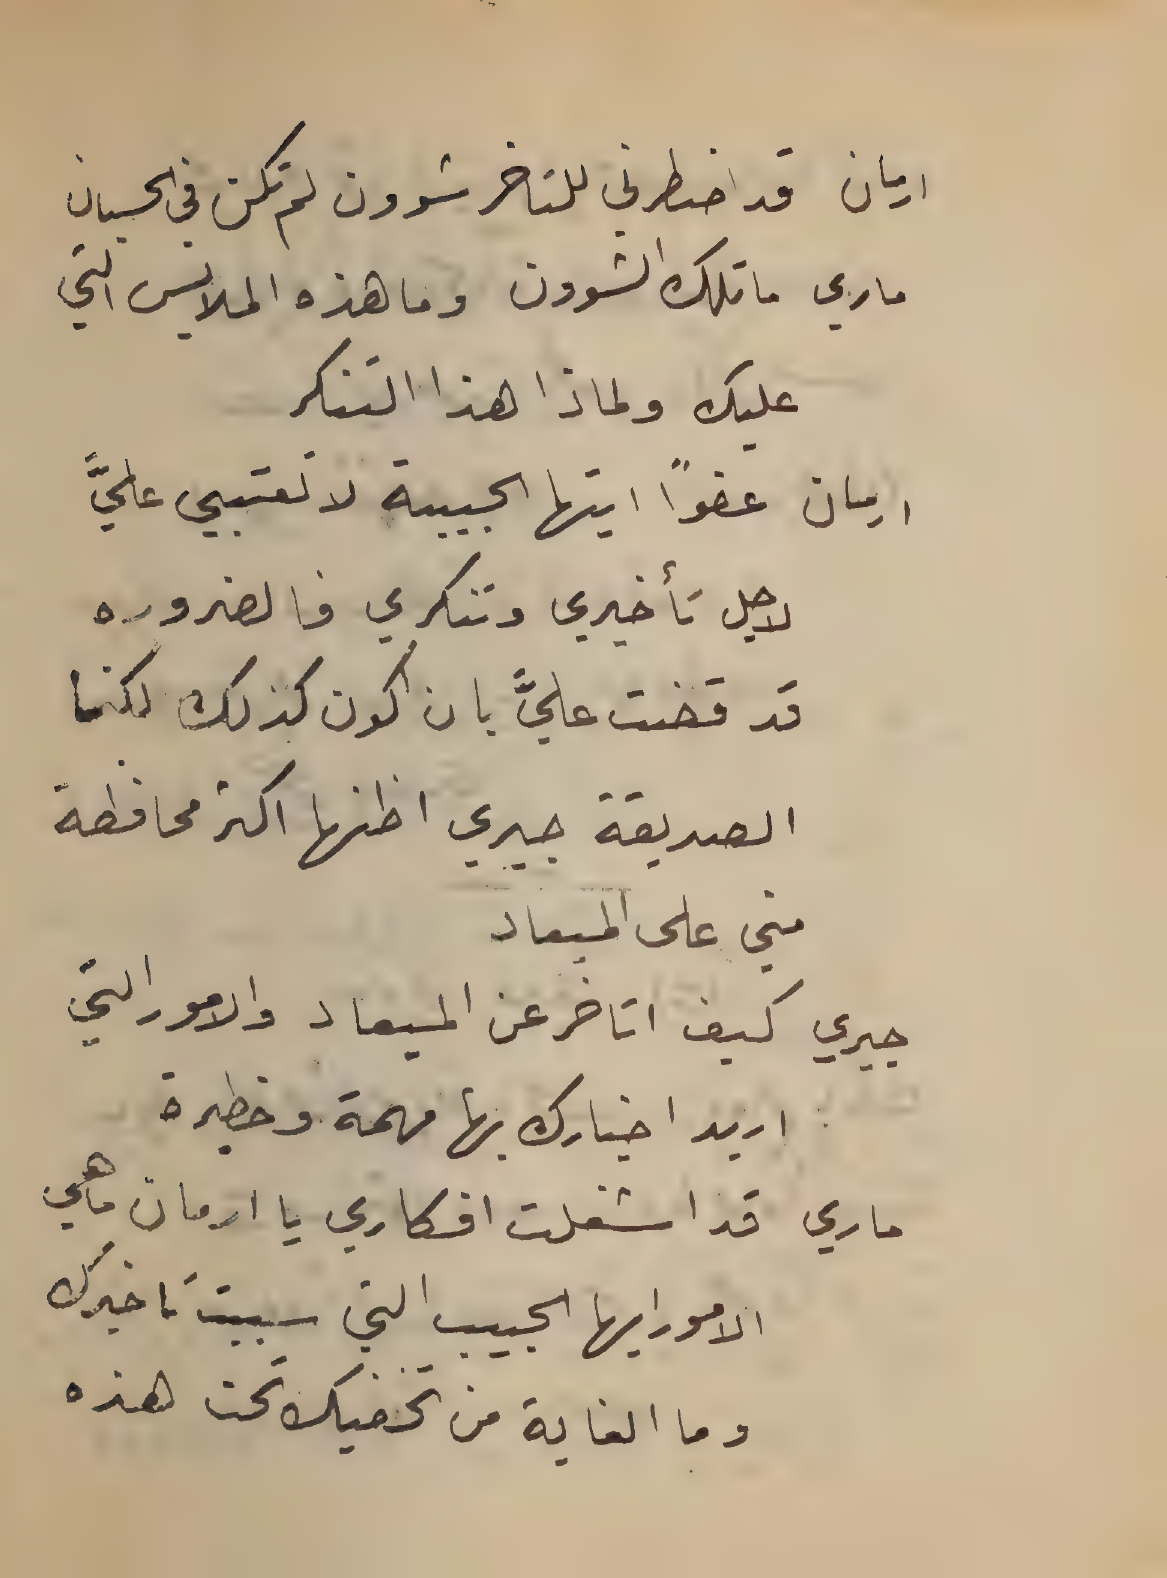 ارمان قد اضطرني للتاخر شوون لم تكن في الحسبان
ماري ما تلك الشوون وما هذه الملابس التي
عليك ولماذا هذا التنكر
ارمان عفوًا ايتها الحبيبة لا تعتبي عليَّ
لاجل تأخيري وتنكري فالضروره
قد قضت عليَّ بان اكون كذلك لكنما
الصديقة جيري اظنها اكثر محافظة
مني على الميعاد
جيري كيف اتاخر عن الميعاد والامور التي
اريد اخبارك بها مهمة وخطيرة
ماري قد اشغلت افكاري يا ارمان ما هي
الامور ايها الحبيب التي سببت تاخيرك
وما الغاية من تخفيك تحت هذه